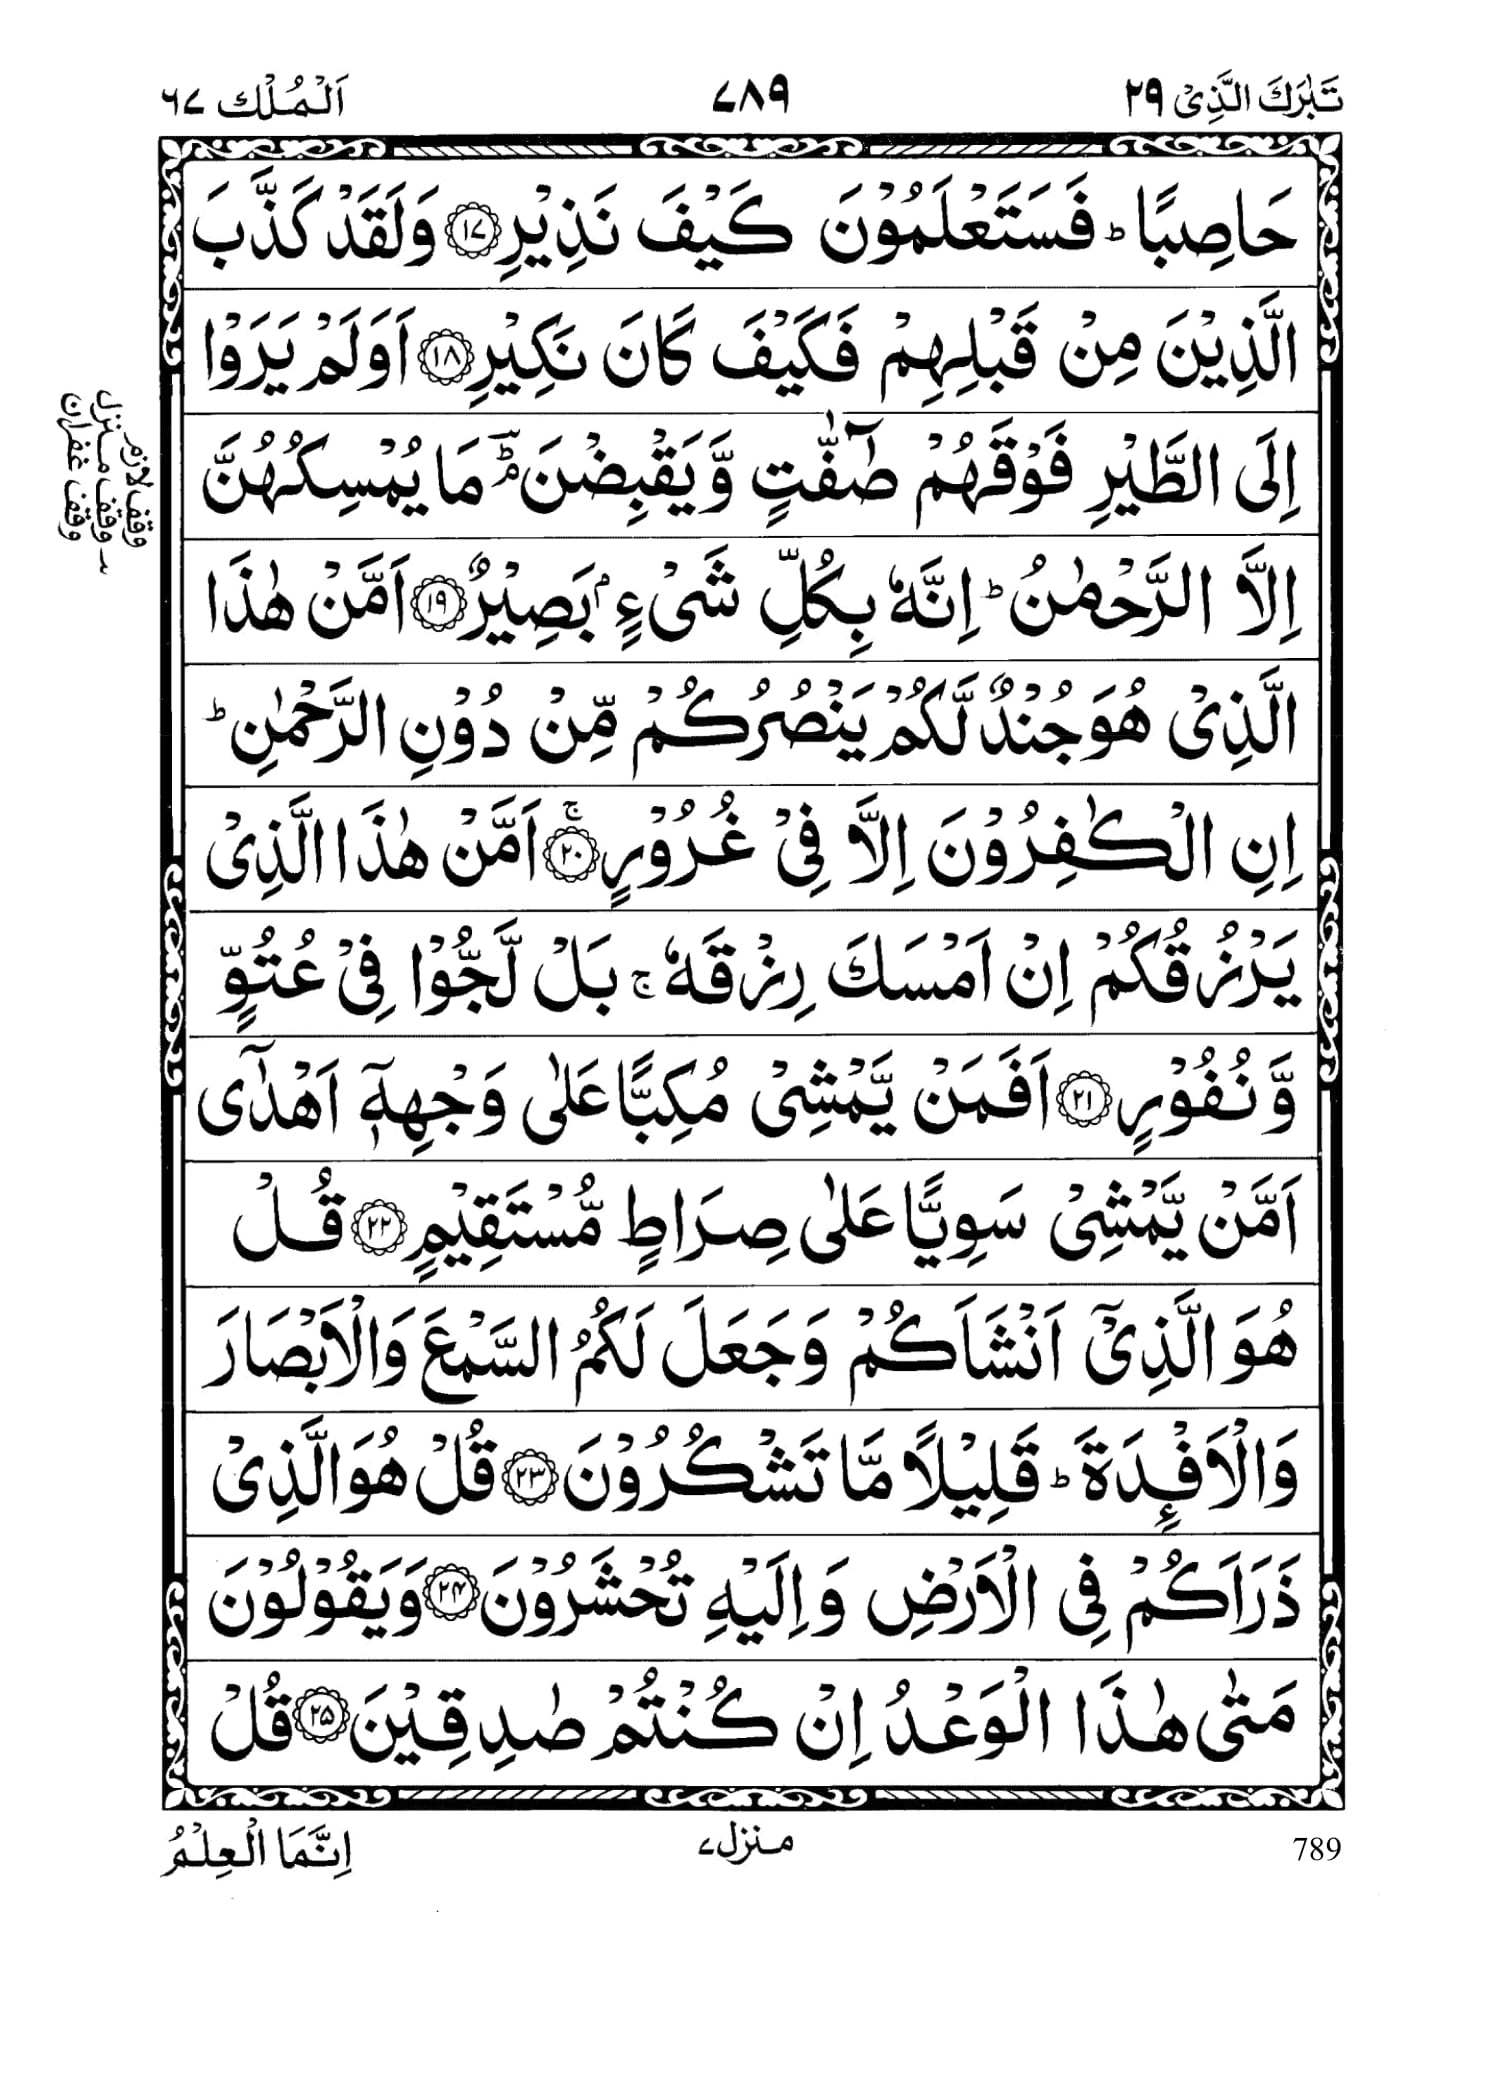 تَبٰرَكَ الَّذِىْ ٢٩ ٧٨٩ اَلْمُلْك ٦٧
حَاصِبًا ؕ فَسَتَعْلَمُوْنَ كَيْفَ نَذِيْرِ ١٧ وَلَقَدْ كَذَّبَ
الَّذِيْنَ مِنْ قَبْلِهِمْ فَكَيْفَ كَانَ نَكِيْرِ ١٨ اَوَلَمْ يَرَوْا
اِلَى الطَّيْرِ فَوْقَهُمْ صٰٓفّٰتٍ وَّيَقْبِضْنَ ؔۘؕ مَا يُمْسِكُهُنَّ
اِلَّا الرَّحْمٰنُ ؕ اِنَّهٗ بِكُلِّ شَىْءٍۭ بَصِيْرٌ ١٩ اَمَّنْ هٰذَا
الَّذِىْ هُوَ جُنْدٌ لَّكُمْ يَنْصُرُكُمْ مِّنْ دُوْنِ الرَّحْمٰنِ ؕ
اِنِ الْكٰفِرُوْنَ اِلَّا فِىْ غُرُوْرٍ ۚ ٢٠ اَمَّنْ هٰذَا الَّذِىْ
يَرْزُقُكُمْ اِنْ اَمْسَكَ رِزْقَهٗ ۚ بَلْ لَّجُّوْا فِىْ عُتُوٍّ
وَّنُفُوْرٍ ٢١ اَفَمَنْ يَّمْشِىْ مُكِبًّا عَلٰى وَجْهِهٖٓ اَهْدٰٓى
اَمَّنْ يَّمْشِىْ سَوِيًّا عَلٰى صِرَاطٍ مُّسْتَقِيْمٍ ٢٢ قُلْ
هُوَ الَّذِىْٓ اَنْشَاَكُمْ وَجَعَلَ لَكُمُ السَّمْعَ وَالْاَبْصَارَ
وَالْاَفْـِٕدَةَ ؕ قَلِيْلًا مَّا تَشْكُرُوْنَ ٢٣ قُلْ هُوَ الَّذِىْ
ذَرَاَكُمْ فِى الْاَرْضِ وَاِلَيْهِ تُحْشَرُوْنَ ٢٤ وَيَقُوْلُوْنَ
مَتٰى هٰذَا الْوَعْدُ اِنْ كُنْتُمْ صٰدِقِيْنَ ٢٥ قُلْ
وقف لازم
وقف منزل
وقف غفران
789 منزل ٧ اِنَّمَا الْعِلْمُ